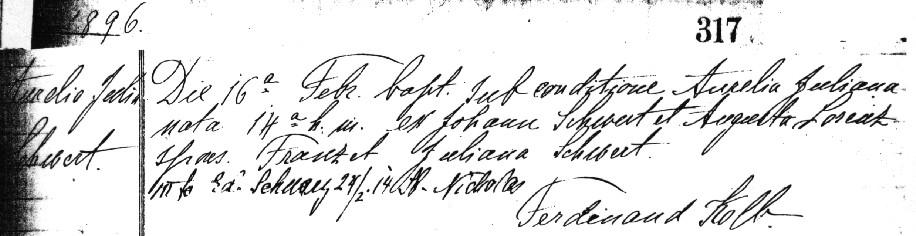 1896.
317
Aurelia Julia
Schwert.
Die 16ª Feb. bapt. sub conditione Aurelia Juliana
nata 14ª h. m. ex Johann Schwert et Augusta Lorenz
spons. Franz et Juliana Schwert.
St. Nicholas
Ferdinand Kolb